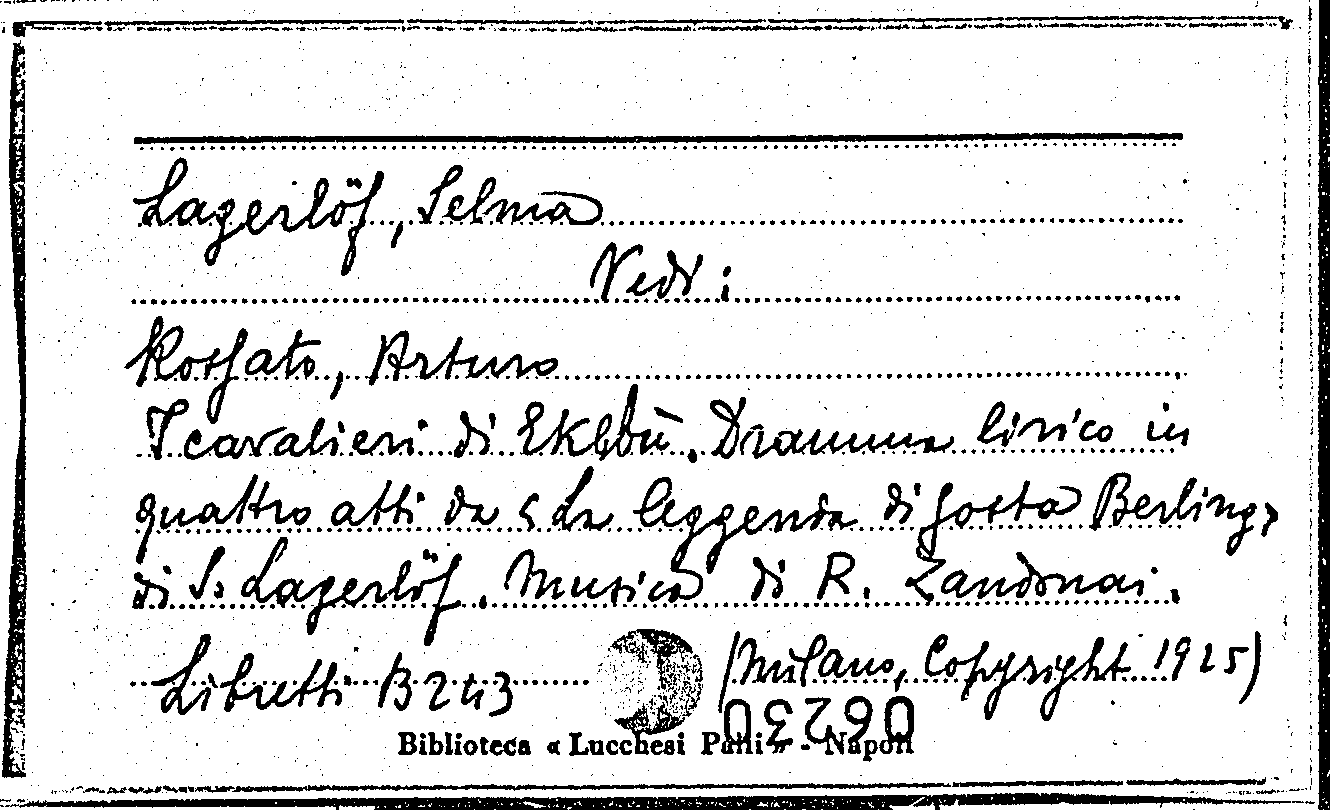 Lagerlöf, Selma
Vedi:
Rossato, Arturo
I cavalieri di Ekebù. Dramma lirico in
quattro atti da « La leggenda di Gosta Berling »
di S. Lagerlöf. Musica di R. Zandonai.
Libretti B 243 (Milano, Copyright 1925)
06230
Biblioteca « Lucchesi Palli » - Napoli